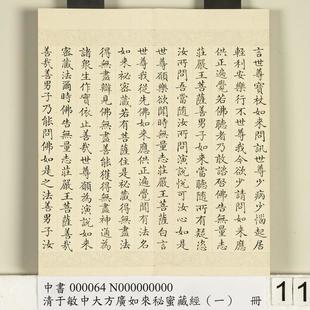 言世尊寶杖如來問訊世尊少病少惱起居
輕利安樂行不世尊我今欲少請問如來應
供正遍覺若佛聽者乃敢諮啓佛告無量志
莊嚴王菩薩善男子如來當聽隨所有疑恣
汝所問吾當隨汝所問演說悅可汝心如是
世尊願樂欲聞時無量志莊嚴王菩薩白言
世尊我從先佛如來應供正遍覺聞有法名
如來祕密藏若有菩薩住是祕藏得無盡法
得無盡辯見佛無盡善能獲得無盡神通為
諸衆生作寶依止善哉世尊願為演說如來
密藏法爾時佛告無量志莊嚴王菩薩善哉
善哉善男子乃能問佛如是之法善男子汝
中書 000064 N000000000
清于敏中大方廣如來秘蜜藏經（一） 冊
11